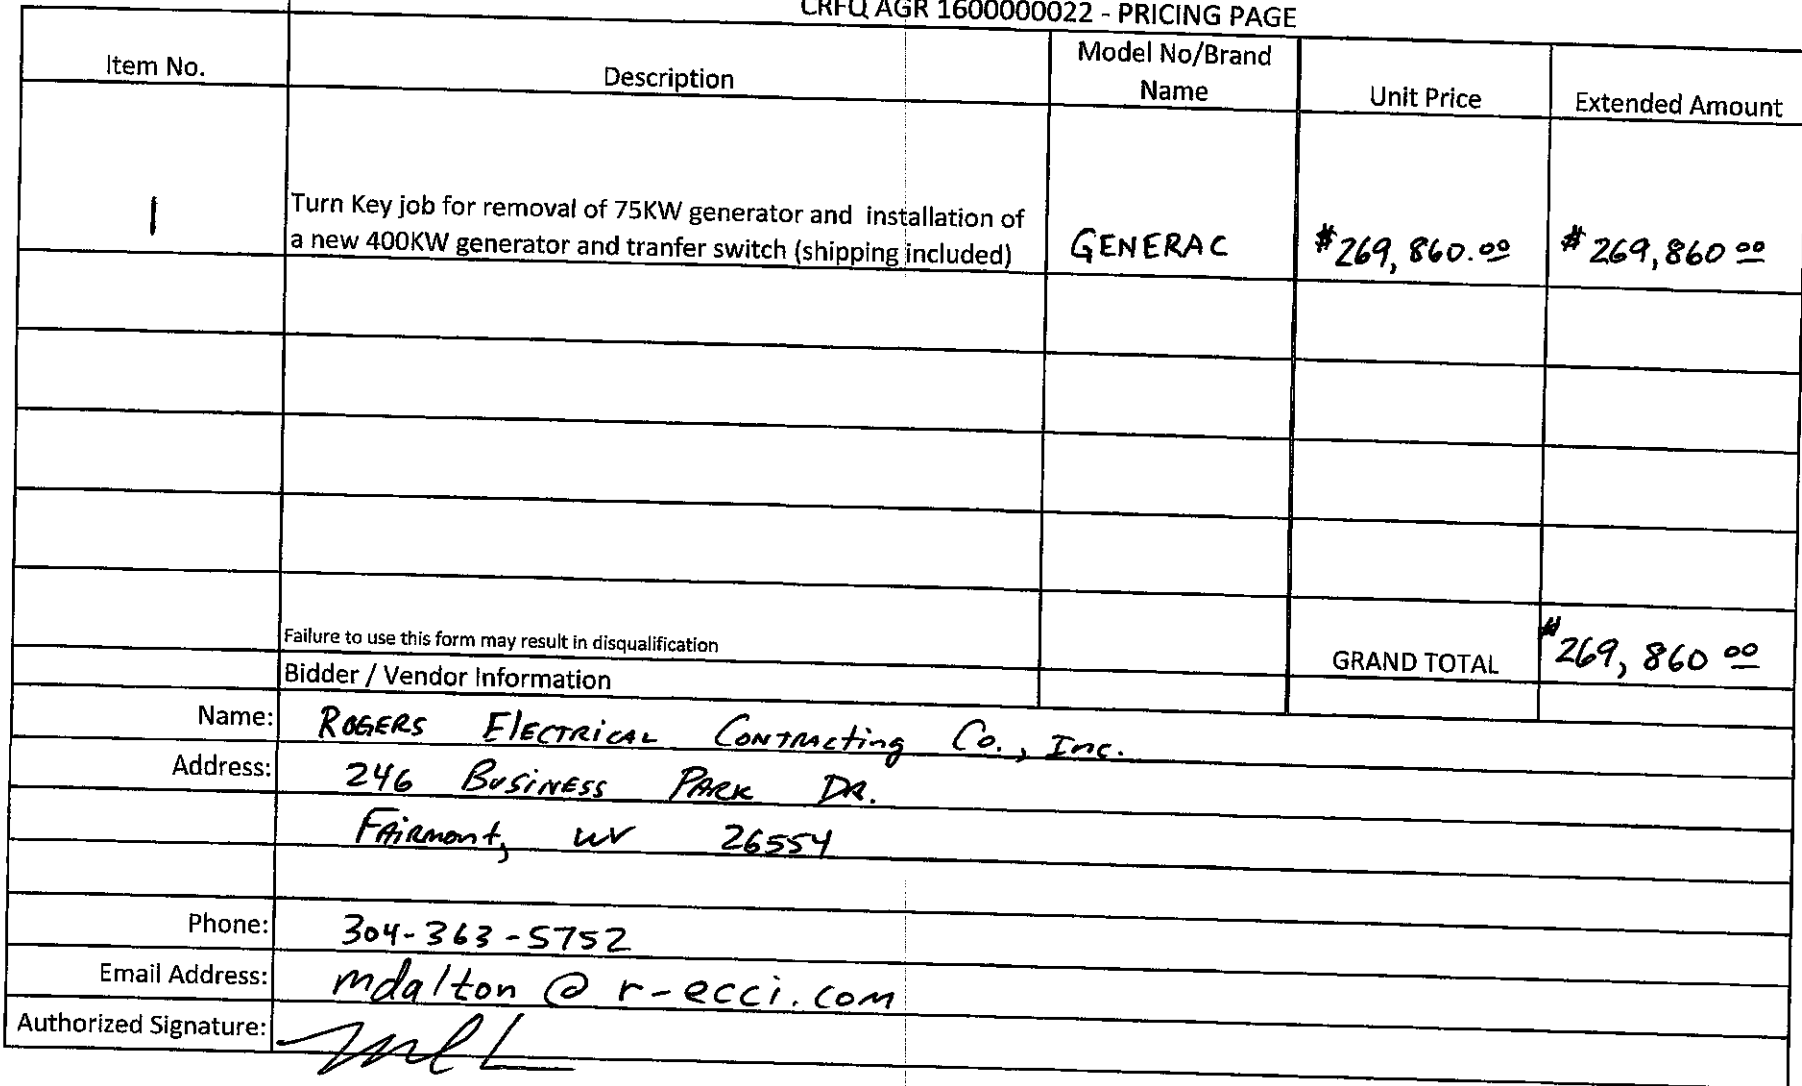 CRFQ AGR 1600000022 - PRICING PAGE
Item No.
Description
Model No/Brand
Name
Unit Price
Extended Amount
1
Turn Key job for removal of 75KW generator and installation of
a new 400KW generator and tranfer switch (shipping included)
GENERAC
$269,860.00
$269,860 00
Failure to use this form may result in disqualification
GRAND TOTAL
$269,860 00
Bidder / Vendor Information
Name: ROGERS ELECTRICAL CONTRACTING Co., Inc.
Address: 246 BUSINESS PARK DR.
FAIRMONT, WV 26554
Phone: 304-363-5752
Email Address: mdalton @ r-ecci.com
Authorized Signature: